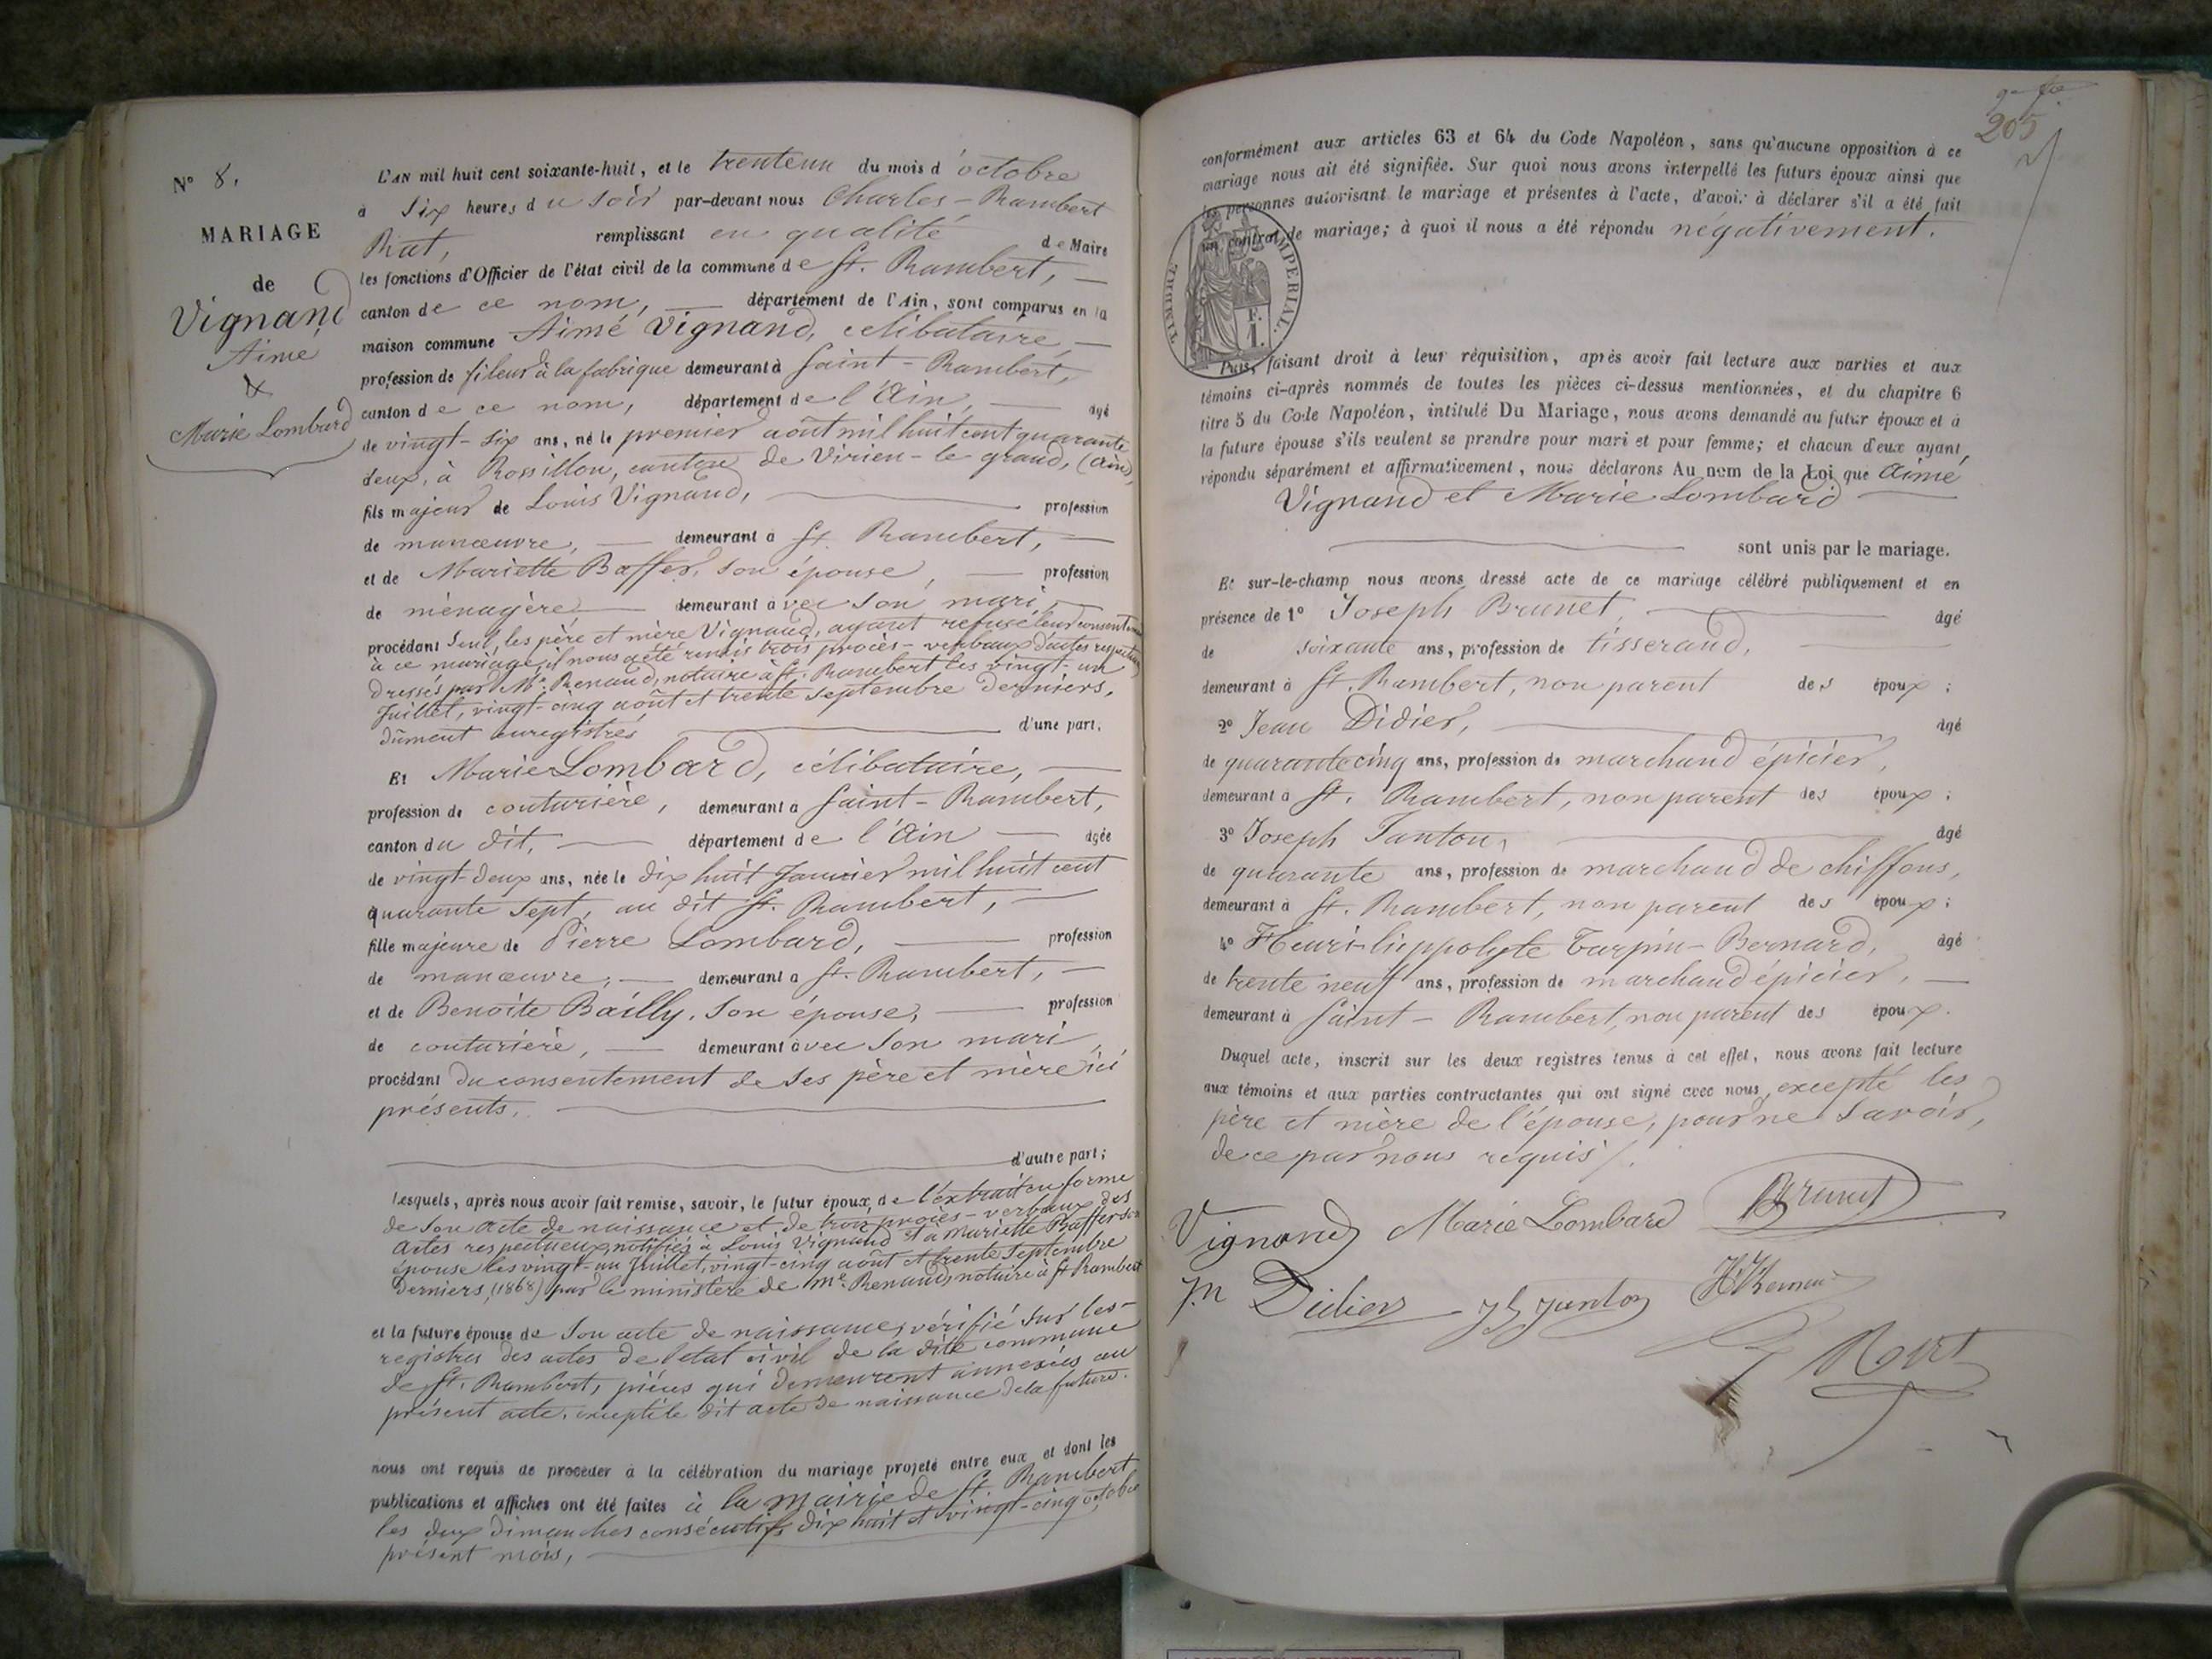 N° 8.
MARIAGE
de
Vignand
Aimé
&
Marie Lombard
L'AN mil huit cent soixante-huit, et le trente un du mois d'octobre
à six heures du soir par-devant nous Charles-Rambert
Rat, remplissant en qualité de Maire
les fonctions d'Officier de l'état civil de la commune de St. Rambert,
canton de ce nom, département de l'Ain, sont comparus en la
maison commune Aimé Vignand, célibataire,
profession de fileur à la fabrique demeurant à Saint-Rambert,
canton de ce nom, département de l'Ain, âgé
de vingt-six ans, né le premier août mil huit cent quarante
deux, à Rossillon, canton de Virieu-le grand, (Ain),
fils majeur de Louis Vignand, profession
de manœuvre, demeurant à St. Rambert,
et de Mariette Baffer, son épouse, profession
de ménagère, demeurant avec son mari,
procédant seul, les père et mère Vignand, ayant refusé leur consentement
à ce mariage, il nous a été remis trois procès-verbaux d'actes respectueux
dressés par Me. Renaud, notaire à St. Rambert les vingt-un
Juillet, vingt-cinq août et trente septembre derniers,
dûment enregistrés d'une part.
Et Marie Lombard, célibataire,
profession de couturière, demeurant à Saint-Rambert,
canton du dit, département de l'Ain âgée
de vingt-deux ans, née le dix huit Janvier mil huit cent
quarante sept, au dit St. Rambert,
fille majeure de Pierre Lombard, profession
de manœuvre, demeurant à St. Rambert,
et de Benoite Bailly, son épouse, profession
de couturière, demeurant avec son mari,
procédant du consentement de ses père et mère ici
présents.
d'autre part;
Lesquels, après nous avoir fait remise, savoir, le futur époux, de l'extrait en forme
de son acte de naissance et de trois procès-verbaux des
actes respectueux notifiés à Louis Vignand et à Mariette Baffer son
épouse les vingt-un Juillet, vingt-cinq août et trente Septembre
derniers, (1868) par le ministère de Me. Renaud, notaire à St Rambert
et la future épouse de son acte de naissance, vérifié sur les
registres des actes de l'état civil de la dite commune
de St. Rambert, pièces qui demeurent annexées au
présent acte, excepté le dit acte de naissance de la future.
nous ont requis de procéder à la célébration du mariage projeté entre eux, et dont les
publications et affiches ont été faites à la mairie de St. Rambert,
les deux dimanches consécutifs dix huit et vingt-cinq octobre
présent mois,
205
conformément aux articles 63 et 64 du Code Napoléon, sans qu'aucune opposition à ce
mariage nous ait été signifiée. Sur quoi nous avons interpellé les futurs époux ainsi que
les personnes autorisant le mariage et présentes à l'acte, d'avoir à déclarer s'il a été fait
un contrat de mariage; à quoi il nous a été répondu négativement.
TIMBRE IMPERIAL.
F.
1.
Puis, faisant droit à leur réquisition, après avoir fait lecture aux parties et aux
témoins ci-après nommés de toutes les pièces ci-dessus mentionnées, et du chapitre 6
titre 5 du Code Napoléon, intitulé Du Mariage, nous avons demandé au futur époux et à
la future épouse s'ils veulent se prendre pour mari et pour femme; et chacun d'eux ayant
répondu séparément et affirmativement, nous déclarons Au nom de la Loi que Aimé
Vignand et Marie Lombard
sont unis par le mariage.
Et sur-le-champ nous avons dressé acte de ce mariage célébré publiquement et en
présence de 1° Joseph Brunet, âgé
de soixante ans, profession de tisserand,
demeurant à St. Rambert, non parent des époux;
2° Jean Didier, âgé
de quarante cinq ans, profession de marchand épicier,
demeurant à St. Rambert, non parent des époux;
3° Joseph Tanton, âgé
de quarante ans, profession de marchand de chiffons,
demeurant à St. Rambert, non parent des époux;
4° Henri-hippolyte Turpin-Bernard, âgé
de trente neuf ans, profession de marchand épicier,
demeurant à Saint-Rambert, non parent des époux.
Duquel acte, inscrit sur les deux registres tenus à cet effet, nous avons fait lecture
aux témoins et aux parties contractantes qui ont signé avec nous, excepté les
père et mère de l'épouse, pour ne savoir,
de ce par nous requis.
Vignand Marie Lombard Brunet
Didier
Rat